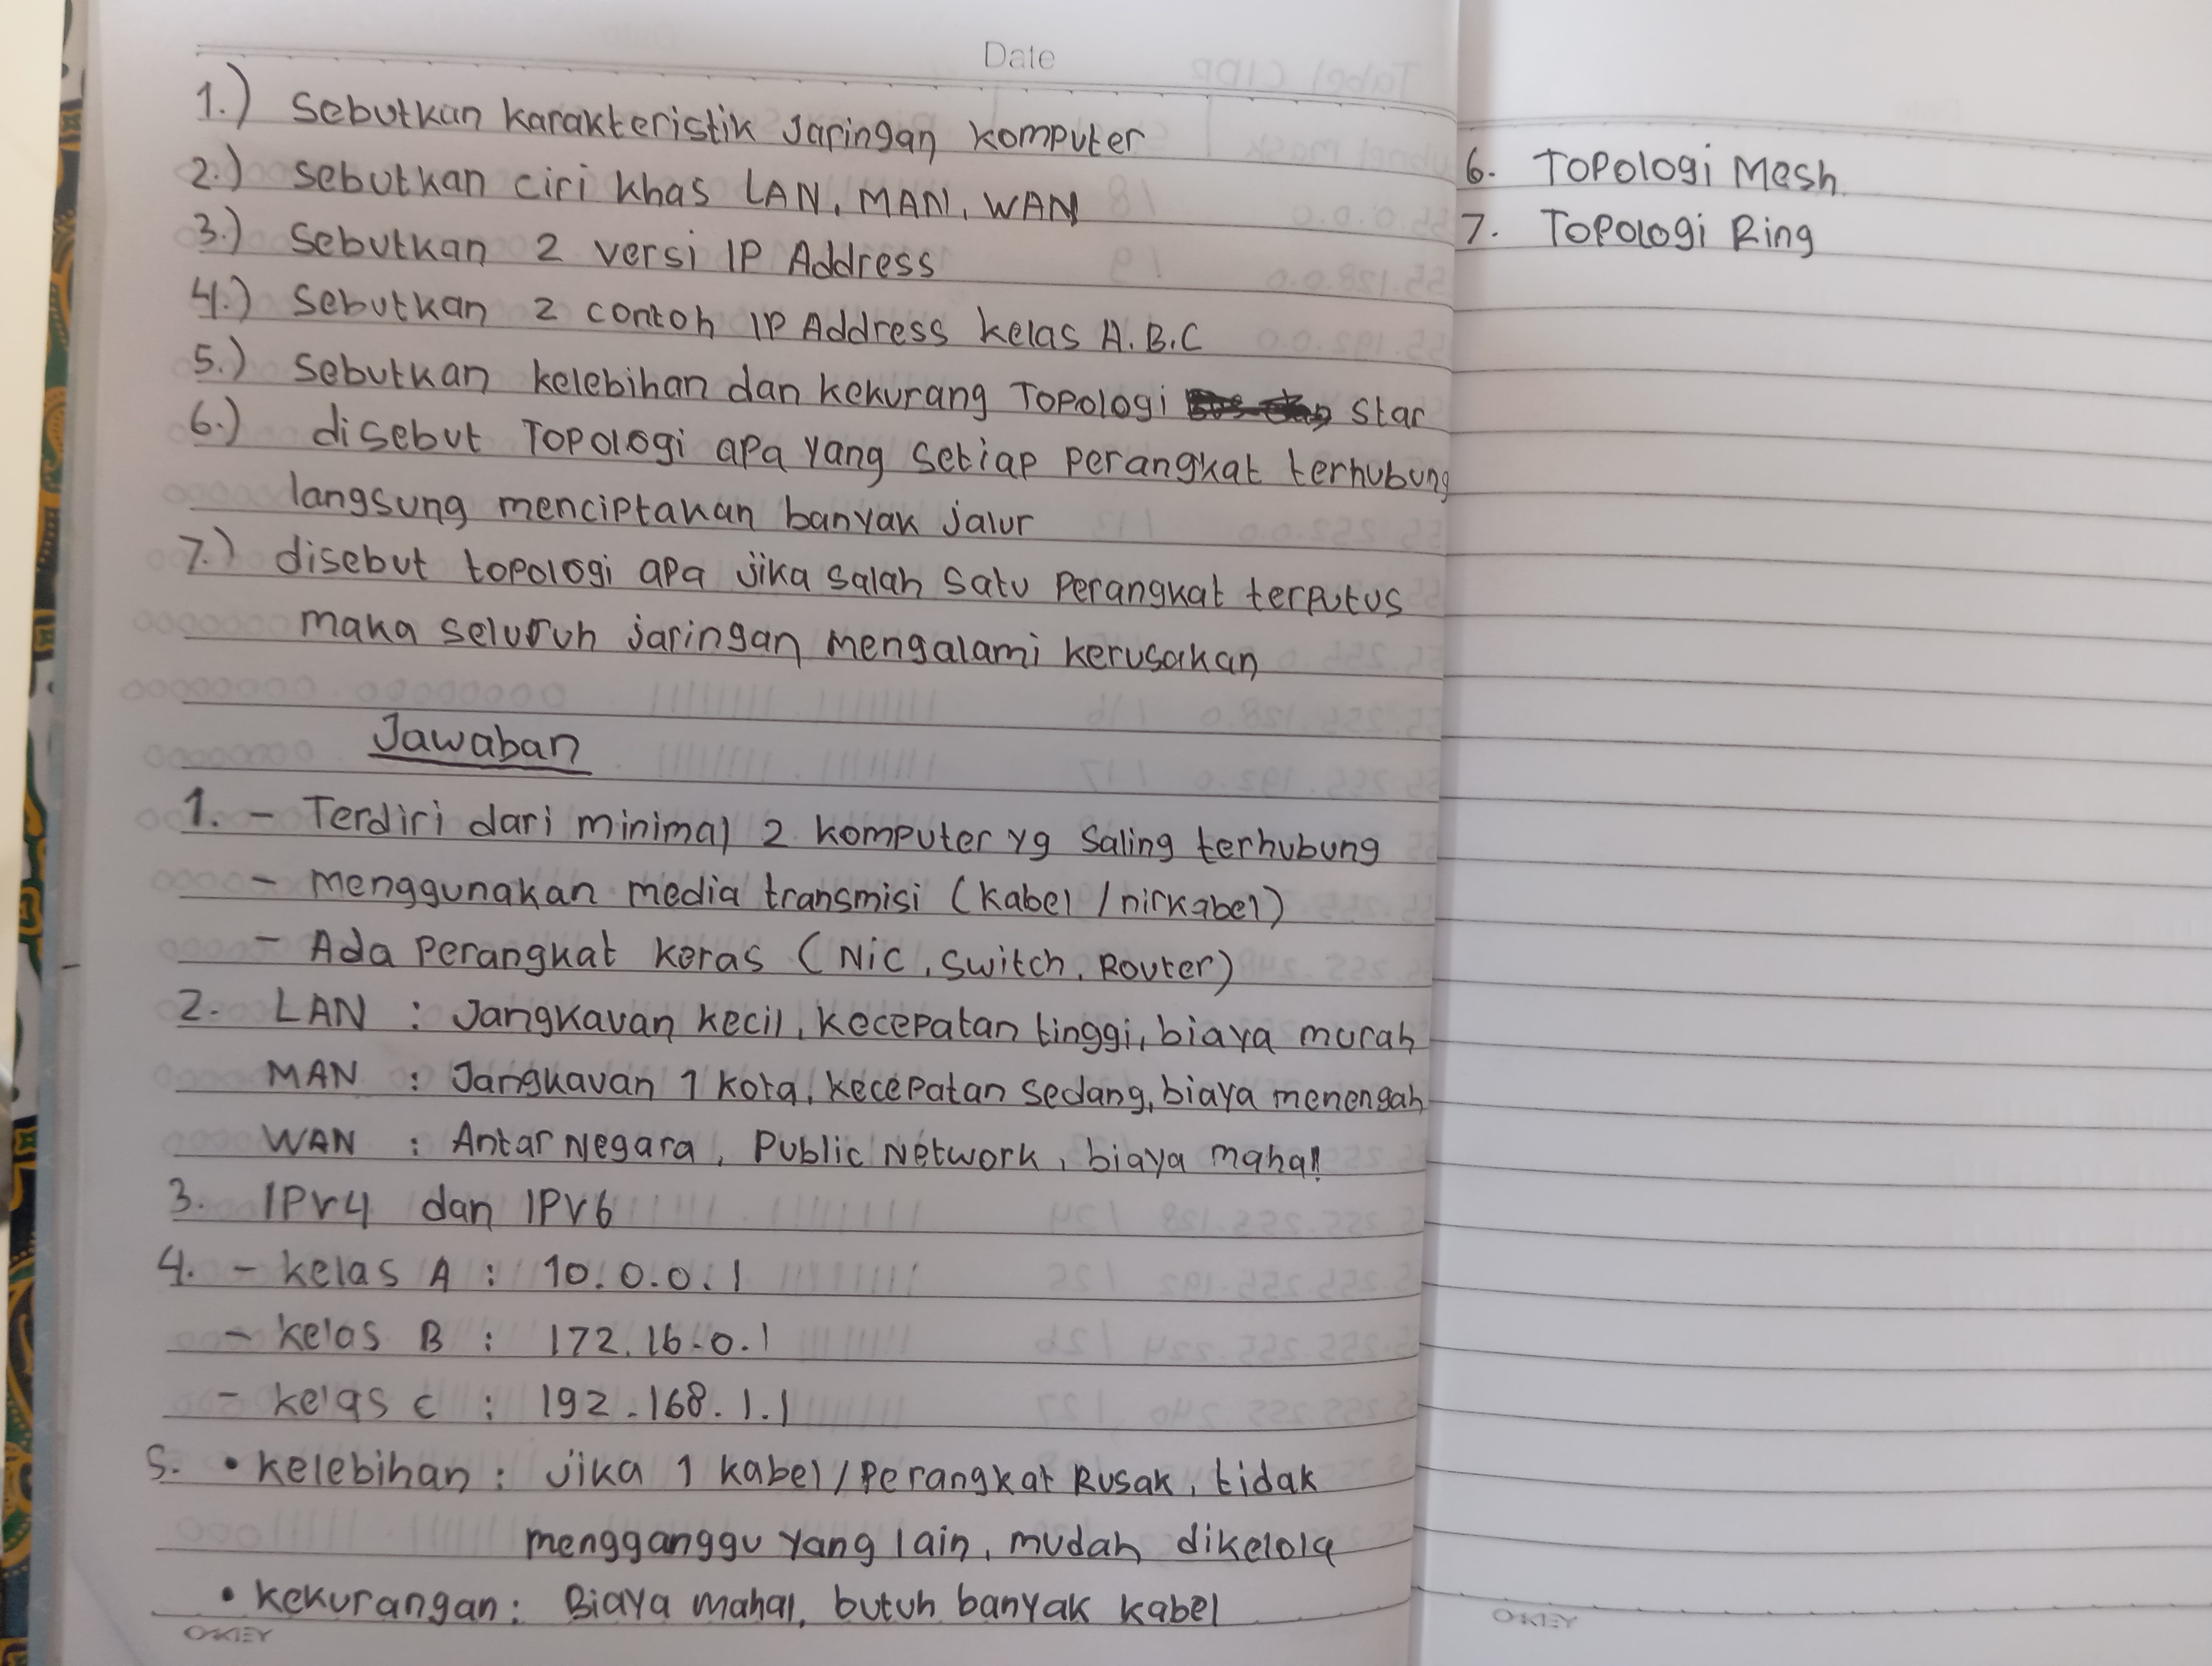 Date
1.) Sebutkan karakteristik Jaringan komputer
2.) Sebutkan ciri khas LAN, MAN, WAN
3.) Sebutkan 2 versi IP Address
4.) Sebutkan 2 contoh IP Address kelas A.B.C
5.) Sebutkan kelebihan dan kekurang Topologi Star
6.) disebut Topologi apa yang setiap perangkat terhubung
langsung menciptakan banyak jalur
7.) disebut topologi apa jika salah satu perangkat terputus
maka seluruh jaringan mengalami kerusakan
Jawaban
1. - Terdiri dari minimal 2 komputer yg saling terhubung
- menggunakan media transmisi (kabel / nirkabel)
- Ada perangkat keras (Nic, Switch, Router)
2. LAN : Jangkauan kecil, kecepatan tinggi, biaya murah
MAN : Jangkauan 1 kota, kecepatan sedang, biaya menengah
WAN : Antar Negara, Public Network, biaya mahal
3. IPv4 dan IPv6
4. - kelas A : 10.0.0.1
- kelas B : 172.16.0.1
- kelas C : 192.168.1.1
5. • kelebihan : jika 1 kabel / perangkat Rusak, tidak
mengganggu yang lain, mudah dikelola
• kekurangan : Biaya mahal, butuh banyak kabel
OKEY
6. Topologi Mesh
7. Topologi Ring
OKEY